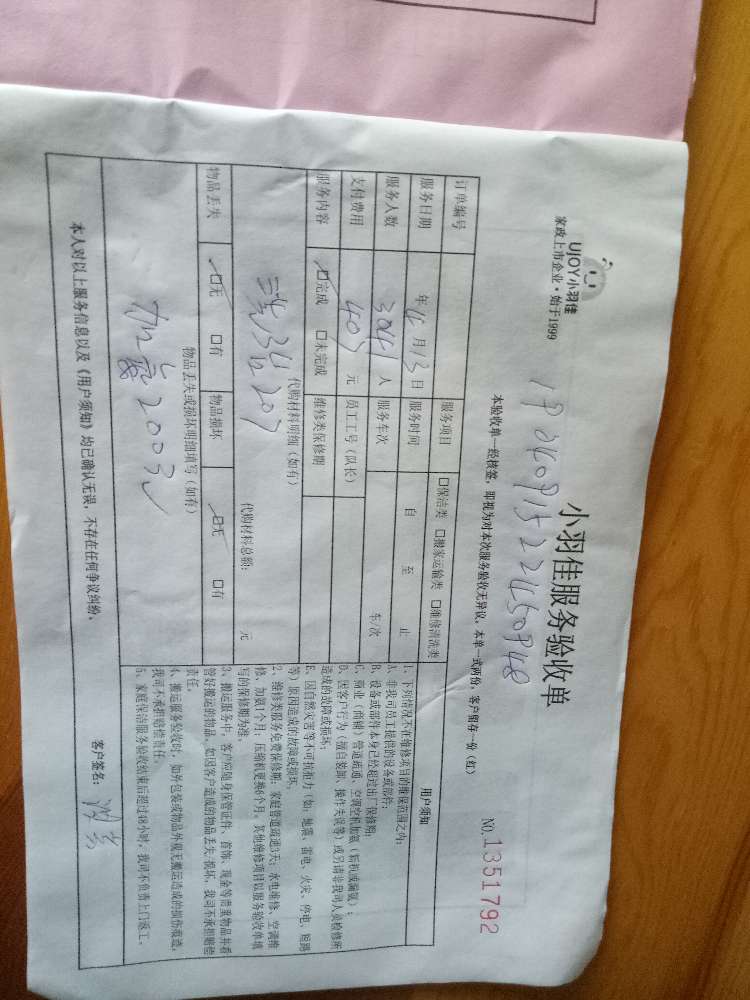 UJOY小羽佳
家政上市企业·始于1999
小羽佳服务验收单
NO.1351792
本验收单一经核签，即视为对本次服务验收无异议，本单一式两份，客户留存一份（红）
订单编号
服务项目 □保洁类 □搬家运输类 □维修清洗类
服务日期 年 4月13日 服务时间 自 至 止
服务人数 人 服务车次 车/次
支付费用 407元 员工工号（队长）
服务内容 ☑完成 □未完成 维修类保修期
代购材料明细（如有）
207
代购材料总额： 元
物品丢失 ☑无 □有 物品损坏 ☑无 □有
物品丢失或损坏明细填写（如有）
2003
用户须知
1、下列情况不在维修项目的维保范围之内：
A、非我司员工提供的设备或部件；
B、设备或部件本身已经超过出厂保修期；
C、商业（商铺）管道疏通、空调空机加氨（新机或漏氨）；
D、因客户行为（擅自装卸、操作失误等）或另请非我司人员检修所
造成的故障或损坏；
E、因自然灾害等不可抗拒力（如：地震、雷电、火灾、停电、短路
等）原因造成的故障或损坏。
2、维修类服务免费保修期：家庭管道疏通3天；水电维修、空调维
修、加氨1个月；压缩机更换6个月。其他维修项目以服务验收单填
写的保修期为准。
3、搬运服务中，客户应随身保管证件、首饰、现金等贵重物品并看
管好搬运的物品。如因客户造成的物品丢失、损坏，我司不承担赔偿
责任。
4、搬运服务验收时，如外包装或物品外观无搬运造成的损伤痕迹，
我司不承担赔偿责任。
5、家庭保洁服务验收结束后超过48小时，我司不负责上门返工。
本人对以上服务信息以及《用户须知》均已确认无误，不存在任何争议纠纷。
客户签名：